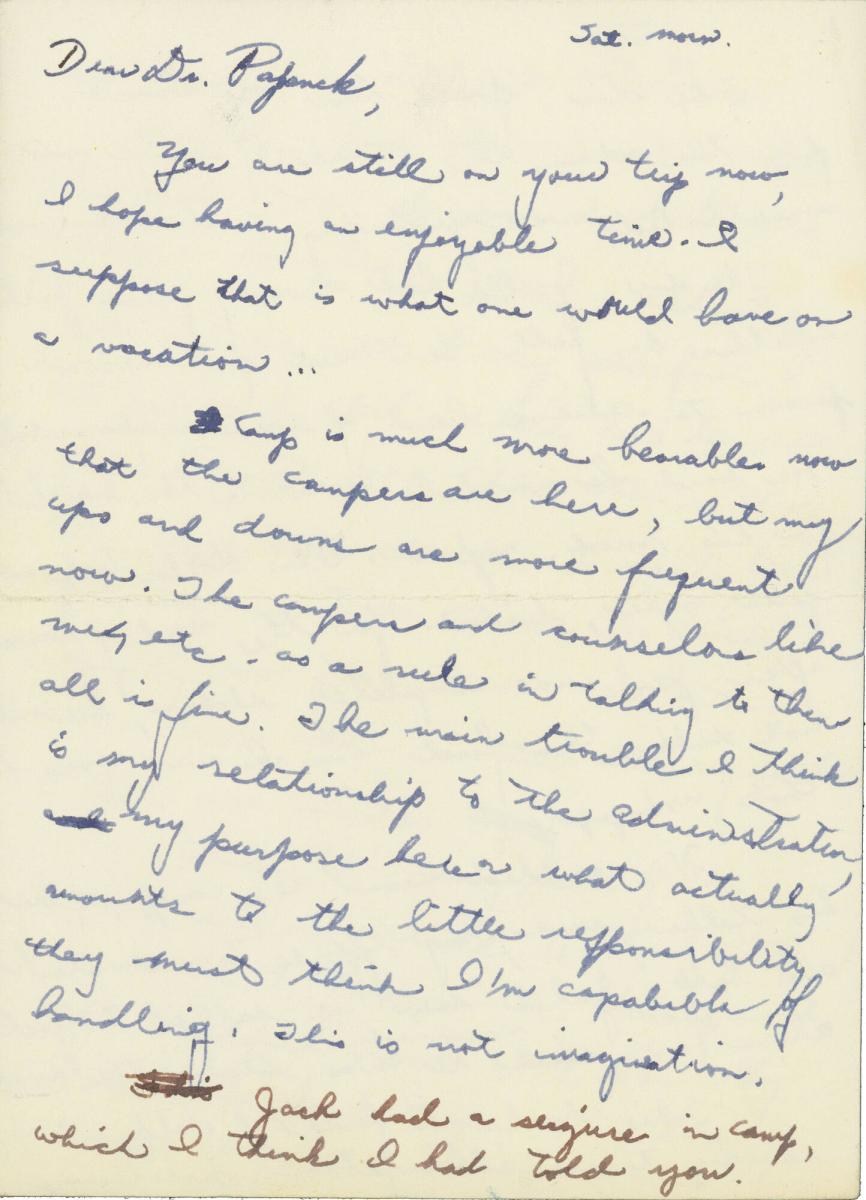 Sat. morn.
Dear Dr. Papanek,
You are still on your trip now,
I hope having an enjoyable time. I
suppose that is what one would have on
a vacation...
Camp is much more bearable now
that the campers are here, but my
ups and downs are more frequent
now. The campers and counselors like
me, etc. as a rule in talking to them
all is fine. The main trouble I think
is my relationship to the administration,
my purpose here or what actually
amounts to the little responsibility
they must think I'm capabible of
handling. This is not imagination.
Jack had a seizure in camp,
which I think I had told you.